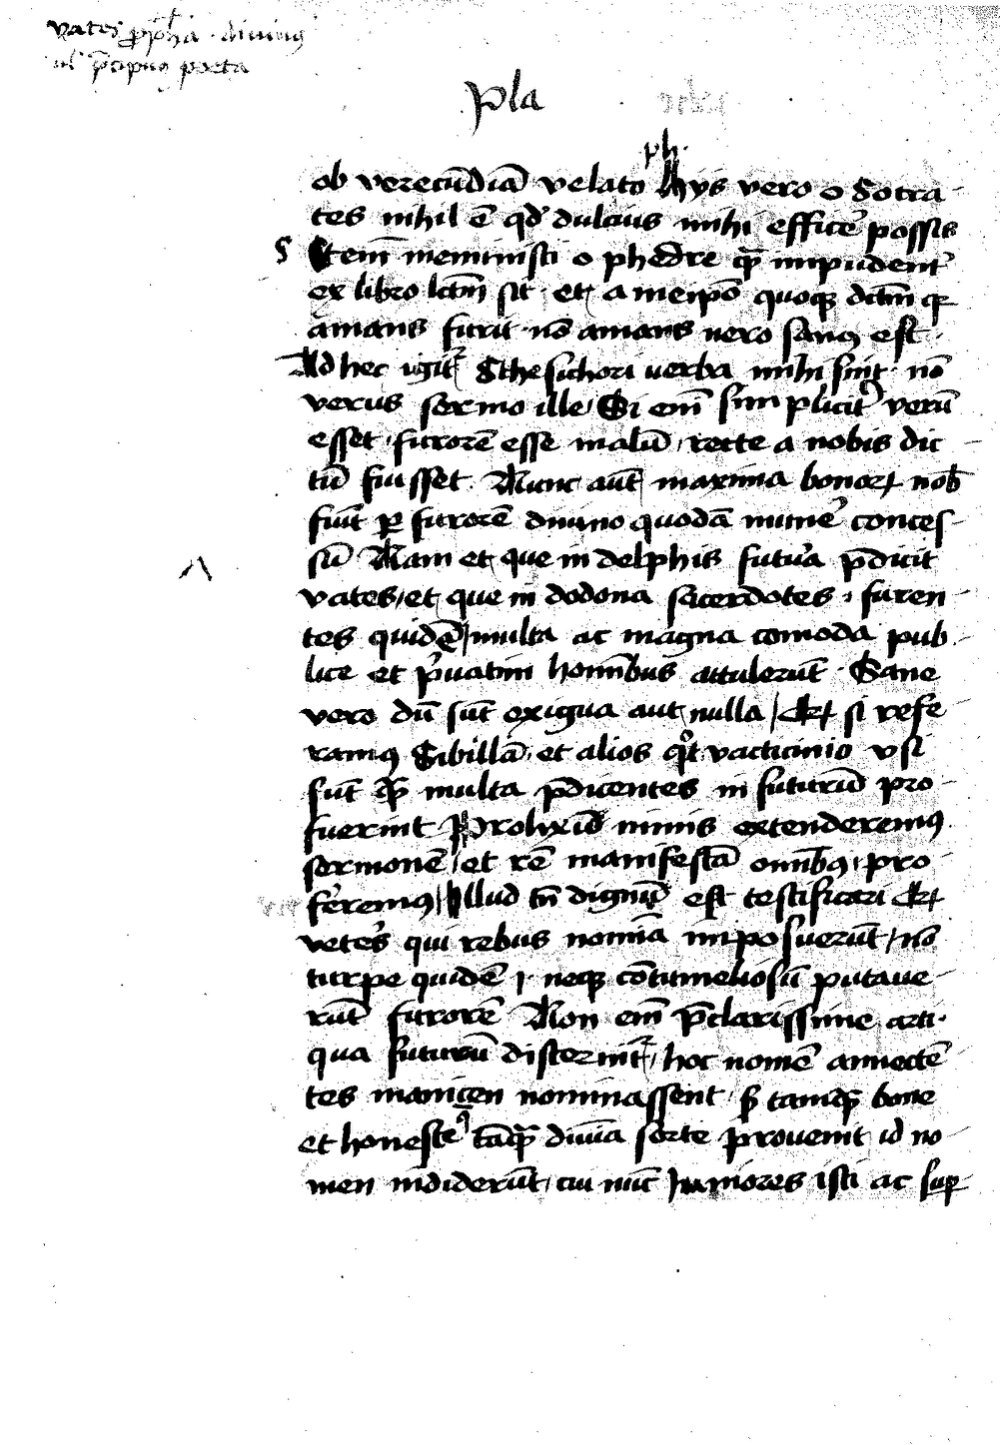 vates ꝓpħa · diuinꝰ
ul' p̄cipuꝰ poeta
Pla
ph.
ob verecūdiā velato Hys vero o Socra-
tes nihil ē qd' dulcius mihi efficē possis
S Etem̄ meministi o phedre qꝫ̄ impudent'
ex libro lc̄m sit · et a meip̄o quoqꝫ dc̄m qꝫ
amans furit · nō amans uero sanꝰ est ·
Ad hec igit' Sthesichori uerba mihi sint · nō
verus sermo ille / Si em̄ simplicit' verū
esset · furorē esse malū / recte a nobis dic-
tū fuisset Nunc aut̄ maxima bonoꝝ nob̄
fiūt ꝑ furorē diuino quodā mune' conces-
sū Nam et que in delphis futura p̄dicit
vates / et que in dodona sacerdotes · furen-
tes quidē / multa ac magna comoda pub-
lice et p'uatim hominibus attulerūt · Sane
vero dū sūt exigua aut nulla / Et si refe-
ramꝰ Sibillā · et alios qͦt vacticinio vsi
sūt qꝫ̄ multa p̄dicentes in futurū pro-
fuerint Prolixiō nimis extenderemꝰ
sermonē / et rē manifestā omībꝰ · pro-
feremꝰ / Illud tn̄ dignū est testificari Et
vetes qui rebus nomīa imposuerūt / nō
turpe quidē / · neqꝫ cōtumeliosū putaue-
rūt furorē Non em̄ p̄clarissime arti·
qua futurū discernit' / hoc nomē annectē-
tes manicen nominassent · s̄ tamqꝫ̄ bone
et honeste tāqꝫ̄ diuīa sorte prouenit id no-
men indiderūt / cui nūc Juniores isti ac suꝑ-